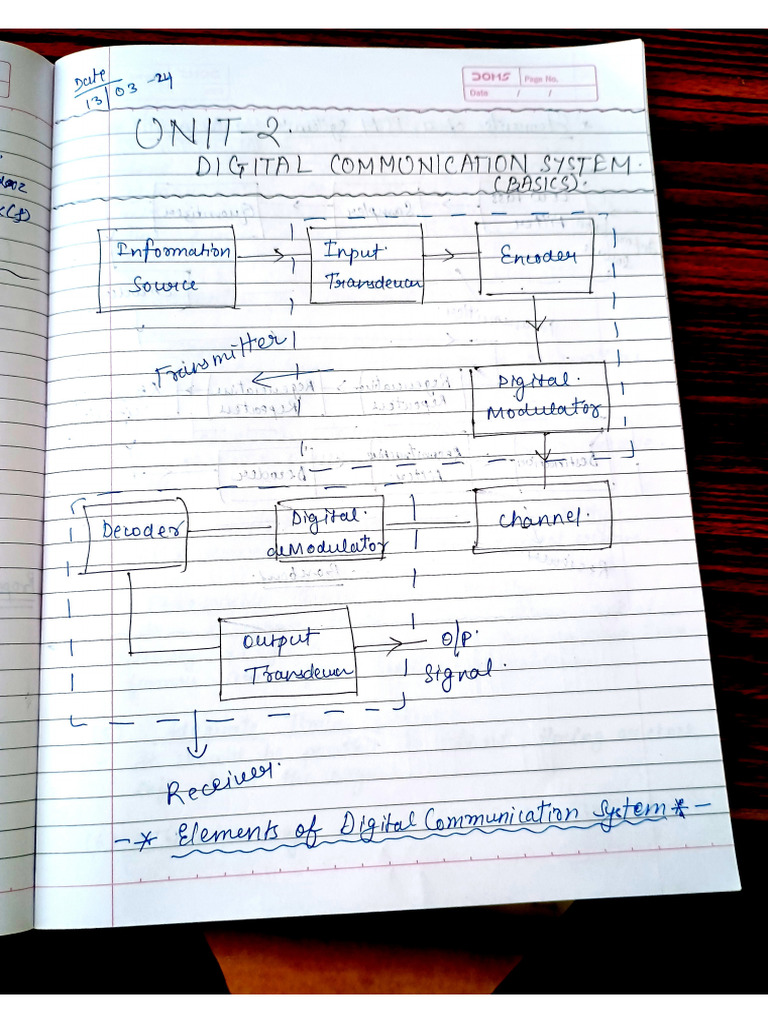 Date
13/03-24
DOMS
Page No.
Date / /
UNIT-2.
DIGITAL COMMUNICATION SYSTEM.
(BASICS).
Information
Source
Input
Transducer
Encoder
Transmitter
Digital
Modulator
Decoder
Digital
deModulator
Channel.
Output
Transducer
O/P.
Signal.
Receiver.
-* Elements of Digital Communication System *-